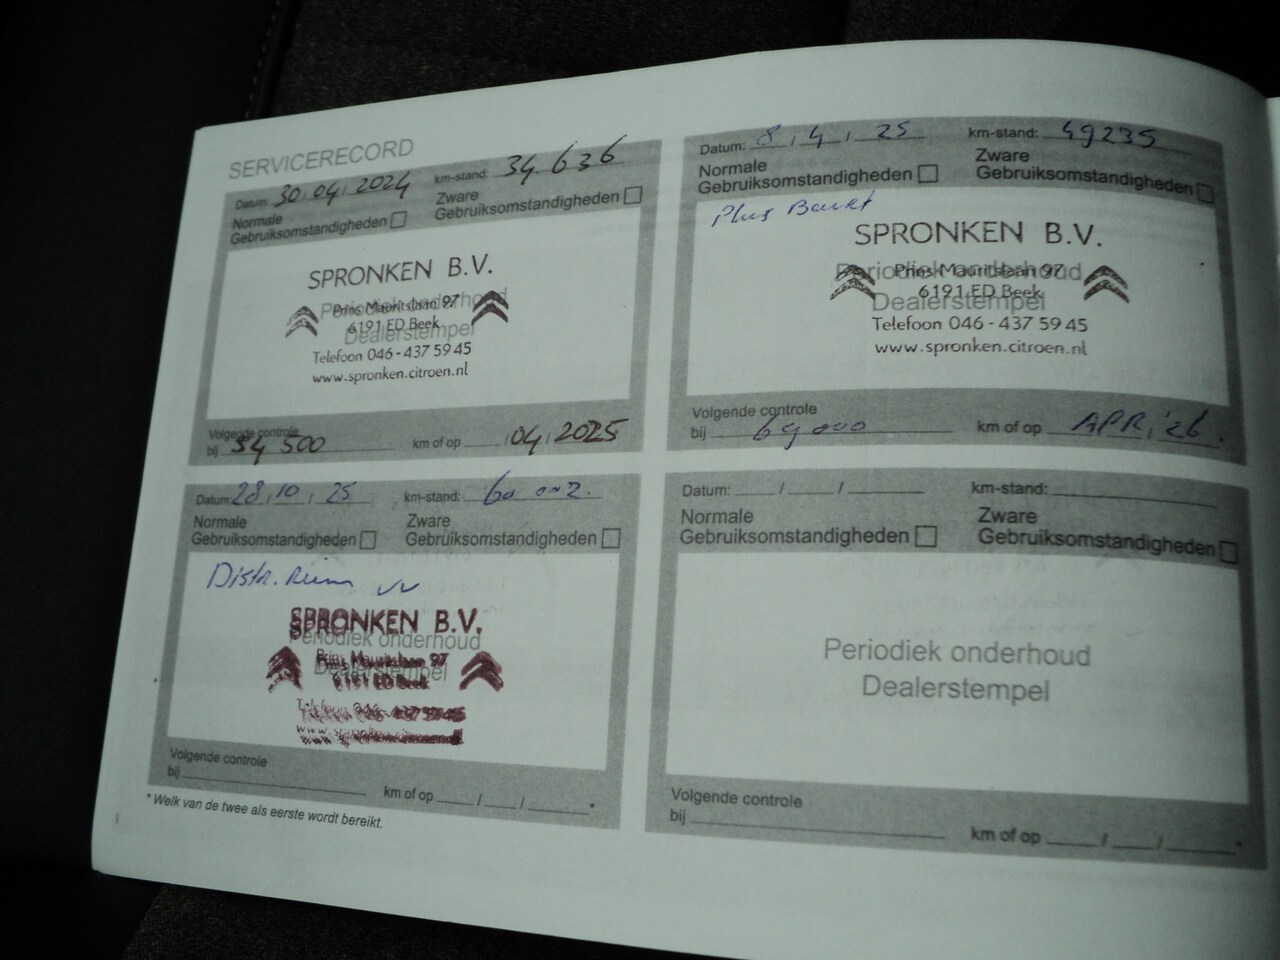 SERVICERECORD
Datum: 30/04/2024 km-stand: 34.636
Normale
Gebruiksomstandigheden
Zware
Gebruiksomstandigheden
SPRONKEN B.V.
Periodiek onderhoud
Prins Mauritslaan 97
6191 ED Beek
Dealerstempel
Telefoon 046-437 59 45
www.spronken.citroen.nl
Volgende controle
bij 54 500 km of op /04/2025
Datum: 8/4/25 km-stand: 49235
Normale
Gebruiksomstandigheden
Zware
Gebruiksomstandigheden
Plus
SPRONKEN B.V.
Periodiek onderhoud
Prins Mauritslaan 97
6191 ED Beek
Dealerstempel
Telefoon 046-437 59 45
www.spronken.citroen.nl
Volgende controle
bij 69000 km of op APR/26
Datum: 28/10/25 km-stand: 60 002.
Normale
Gebruiksomstandigheden
Zware
Gebruiksomstandigheden
Distr. Riem vv
SPRONKEN B.V.
Periodiek onderhoud
Prins Mauritslaan 97
6191 ED Beek
Dealerstempel
Telefoon 046-437 59 45
Volgende controle
bij km of op / / *
* Welk van de twee als eerste wordt bereikt.
Datum: / / km-stand:
Normale
Gebruiksomstandigheden
Zware
Gebruiksomstandigheden
Periodiek onderhoud
Dealerstempel
Volgende controle
bij km of op / / *